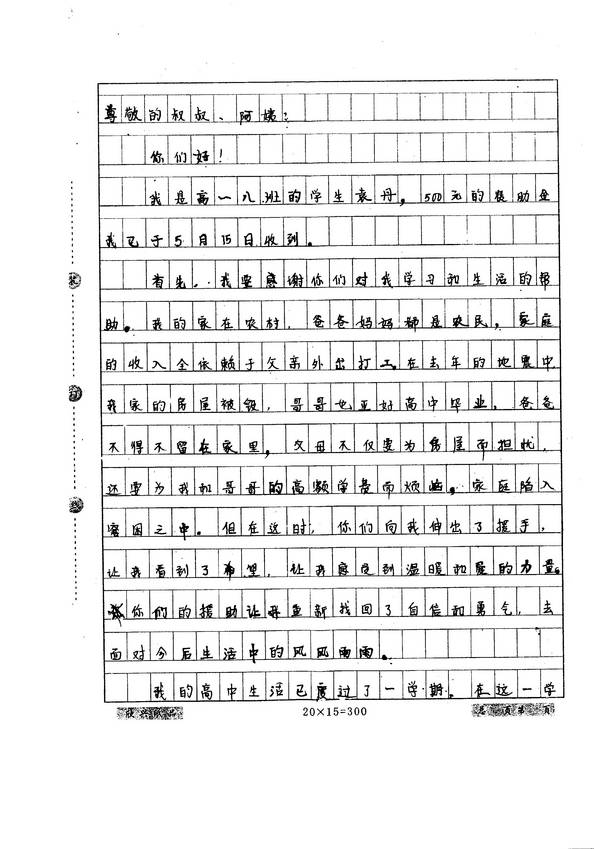 尊敬的叔叔、阿姨：
你们好！
我是高一八班的学生袁丹，500元的援助金
我已于5月15日收到。
首先，我要感谢你们对我学习和生活的帮
助。我的家在农村，爸爸妈妈都是农民，家庭
的收入全依赖于父亲外出打工。在去年的地震中
我家的房屋被毁，哥哥也正好高中毕业，爸爸
不得不留在家里，父母不仅要为房屋而担忧，
还要为我和哥哥的高额学费而烦恼。家庭陷入
窘困之中。但在这时，你们向我伸出了援手，
让我看到了希望，让我感受到温暖和爱的力量。
你们的援助让我重新找回了自信和勇气，去
面对今后生活中的风风雨雨。
我的高中生活已度过了一学期。在这一学
装
订
线
20×15=300
页 第 页